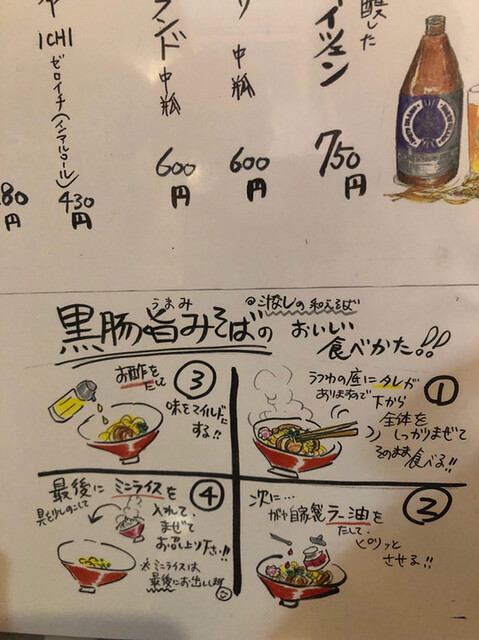 醸した
イツェン
750
円
リ 中瓶
600
円
ランド 中瓶
600
円
ICHI
ゼロイチ(ノンアルコール)
430
円
80
円
黒腸旨みそばの
うまみ
◎汁なしの和えそば
おいしい
食べかた!!
①
うつわの底にタレが
ありますので
下から
全体を
しっかりまぜて
そのまま
食べる!!
②
次に…
自家製ラー油を
たして、
ピリッと
させる!!
③
お酢を
たして
味をマイルドに
する!!
④
最後にミニライスを
具を少しのこして
入れて、
まぜて
お召し上り下さい!!
※ミニライスは
最後にお出しします